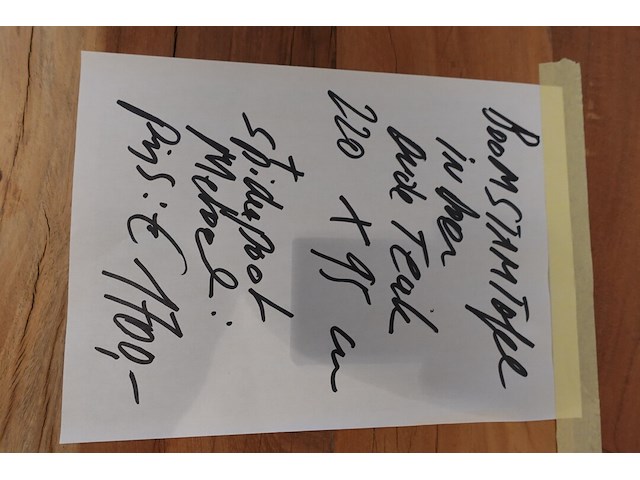 BOOMSTAMTafel
in
oude TEAK
220 x 95 cm
+
Spiderpoot
Metaal :
prijs : € 1700,-